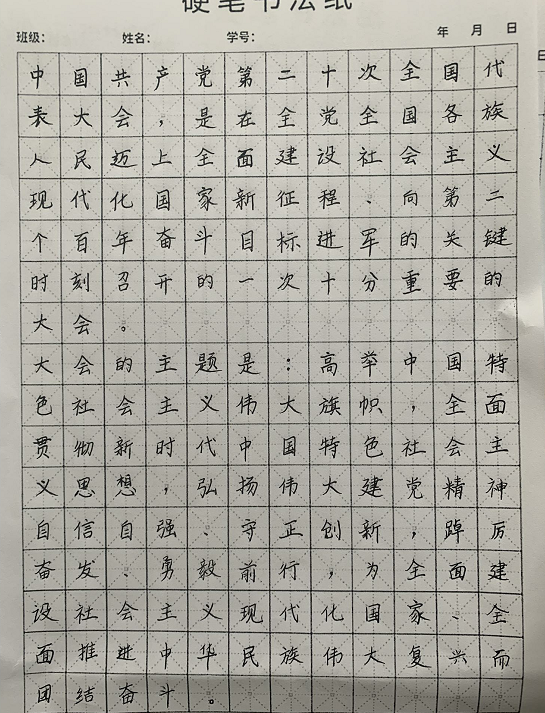 硬笔书法纸
班级: 姓名: 学号: 年 月 日
中国共产党第二十次全国代
表大会，是在全党全国各族
人民迈上全面建设社会主义
现代化国家新征程、向第二
个百年奋斗目标进军的关键
时刻召开的一次十分重要的
大会。
大会的主题是：高举中国特
色社会主义伟大旗帜，全面
贯彻新时代中国特色社会主
义思想，弘扬伟大建党精神
自信自强、守正创新，踔厉
奋发、勇毅前行，为全面建
设社会主义现代化国家、全
面推进中华民族伟大复兴而
团结奋斗。